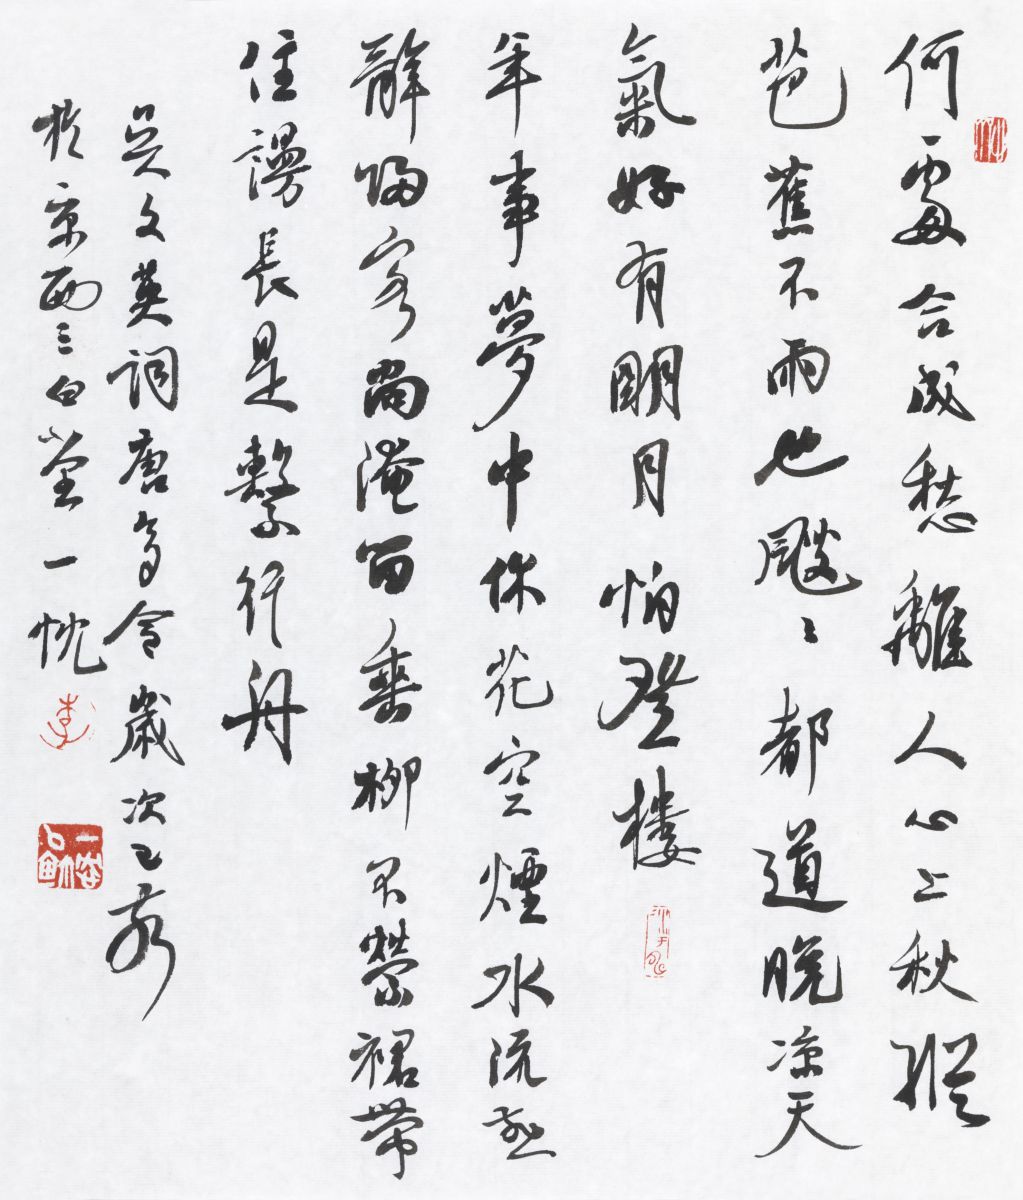 何處合成愁離人心上秋縱
芭蕉不雨也颼〻都道晚凉天
氣好有朙月怕登樓
年事夢中休花空煙水流燕
辭歸客尚淹留垂柳不縈裙帶
住謾長是繫行舟
吳文英詞唐多令歲次乙亥
於京西三白堂一忱
李